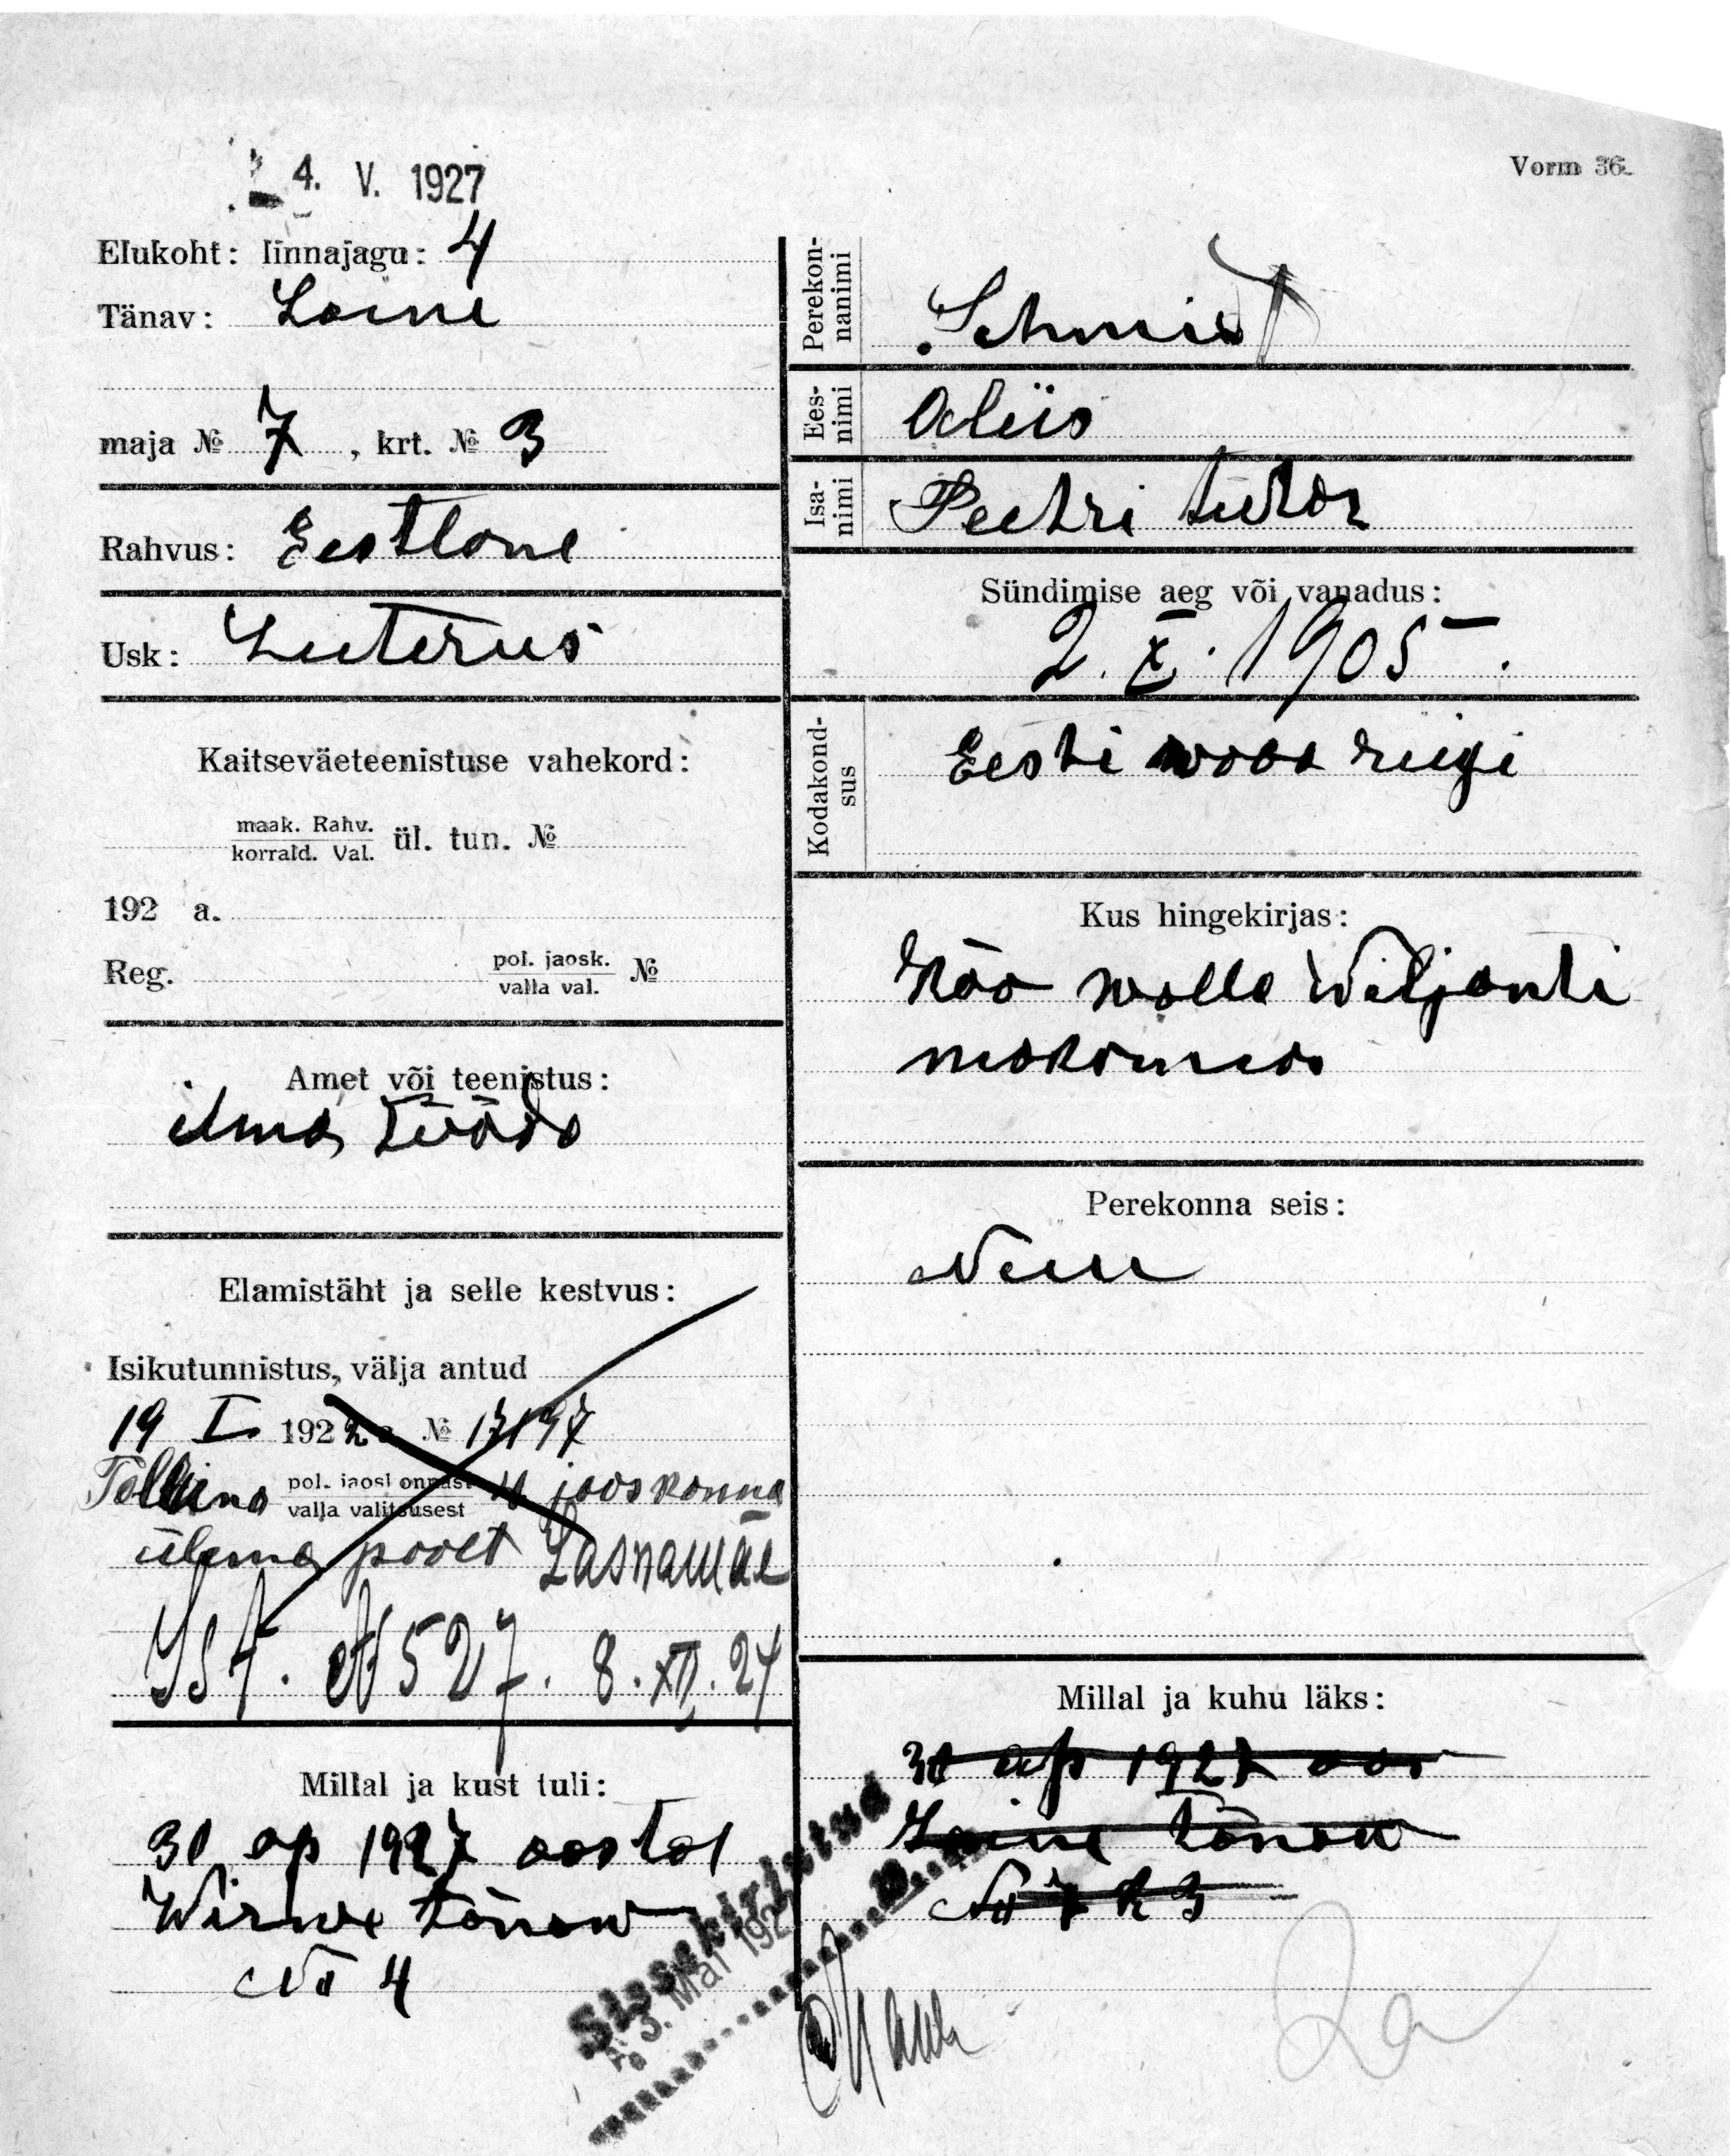 4. V. 1927
Vorm 36.
Elukoht: linnajagu: 4
Tänav: Laine
maja № 7, krt. № 3
Rahvus: Eestlane
Usk: Luterus
Kaitseväeteenistuse vahekord:
maak. Rahv.
korrald. Val. ül. tun. №
192 a.
Reg. pol. jaosk.
valla val. №
Amet või teenistus:
ilma tööda
Elamistäht ja selle kestvus:
Isikutunnistus, välja antud
19 I 1922 a № 17197
Tallina pol. jaoskonnast
valla valitsusest 4 jaoskonna
ülema poolt Lasnamäe
IST. № 527. 8.XII.24
Millal ja kust tuli:
30 ap 1927 aastal
Wirwe tänaw
№ 4
Perekonnanimi
Schmidt
Eesnimi
Aliis
Isanimi
Peetri tütar
Sündimise aeg või vanadus:
2.X.1905.
Kodakondsus
Eesti waba riigi
Kus hingekirjas:
Köo walla Wiljandi
makonnas
Perekonna seis:
Neiu
Millal ja kuhu läks:
30 ap 1927 aas
Laine tänaw
№ 7 k 3
Sissekirjutud
3. Mai 192